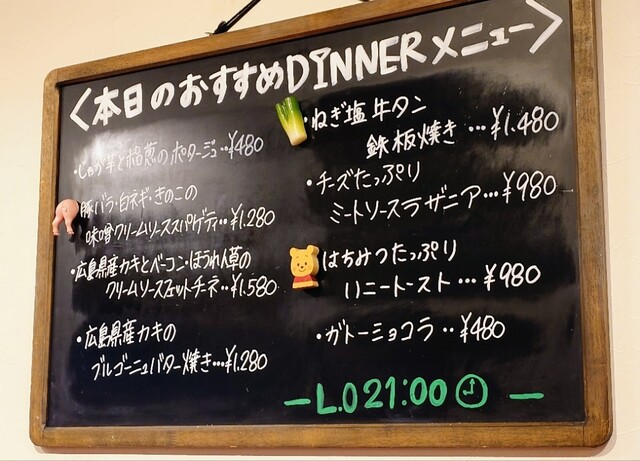 <本日のおすすめDINNERメニュー>
・じゃが芋と椎茸のポタージュ…¥480
豚バラ・白ネギ・きのこの
味噌クリームソーススパゲティ…¥1.280
・広島県産カキとベーコン・ほうれん草の
クリームソースフェットチネ…¥1.580
・広島県産カキの
ブルゴーニュバター焼き…¥1.280
・ねぎ塩牛タン
鉄板焼き…¥1.480
・チーズたっぷり
ミートソースラザニア…¥980
はちみつたっぷり
ハニートースト…¥980
・ガトーショコラ‥¥480
-L.O 21:00 -